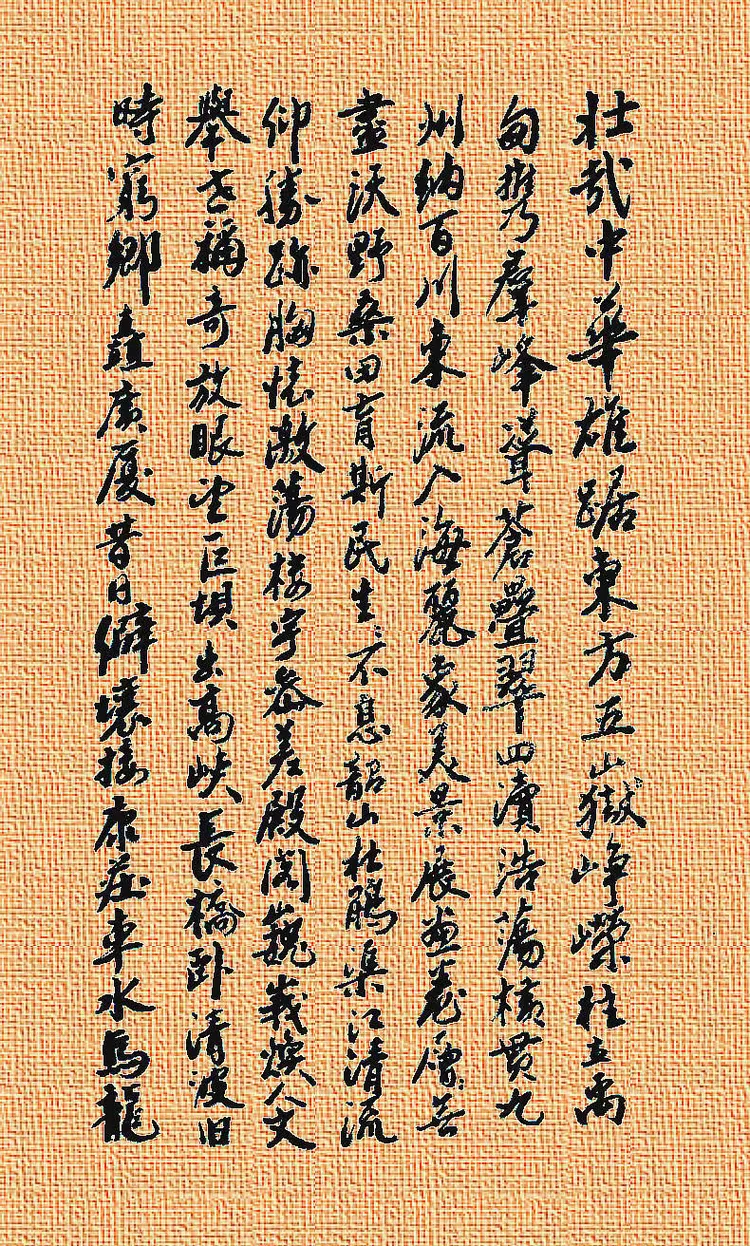 壯哉中華雄踞東方五山嶽崢嶸柱立禹
甸携羣峰聳蒼疊翠四瀆浩蕩橫貫九
州納百川東流入海麗象美景展畫卷層々無
盡沃野桑田育斯民生々不息韶山杜鵑渠江清流
仰勝跡胸懷激蕩樓宇參差殿閣巍峩煥人文
舉世稱奇放眼望巨坝出高峽長橋卧清波旧
時窮鄉矗廣厦昔日僻壤接康莊車水馬龍